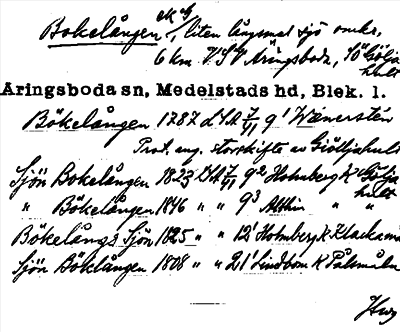 Bokelången, liten långsmal sjö omkr.
6 km V.S.V Åringsboda, SO Göljahult
Åringsboda sn, Medelstads hd, Blek. l.
Bökelången 1787 LSA 7/VI 9' Wänerstén
Prot. ang. storskifte av Giöljahult
Sjön Bokelången 1823 LSA 7/VI 9² Holmberg K Göljahult
" Bökelången 1846 " " 9³ " "
Bökelångs Sjön 1825 " " 12' Holmberg K Klackamåla
Sjön Bökelången 1808 " " 21' Lindbom K